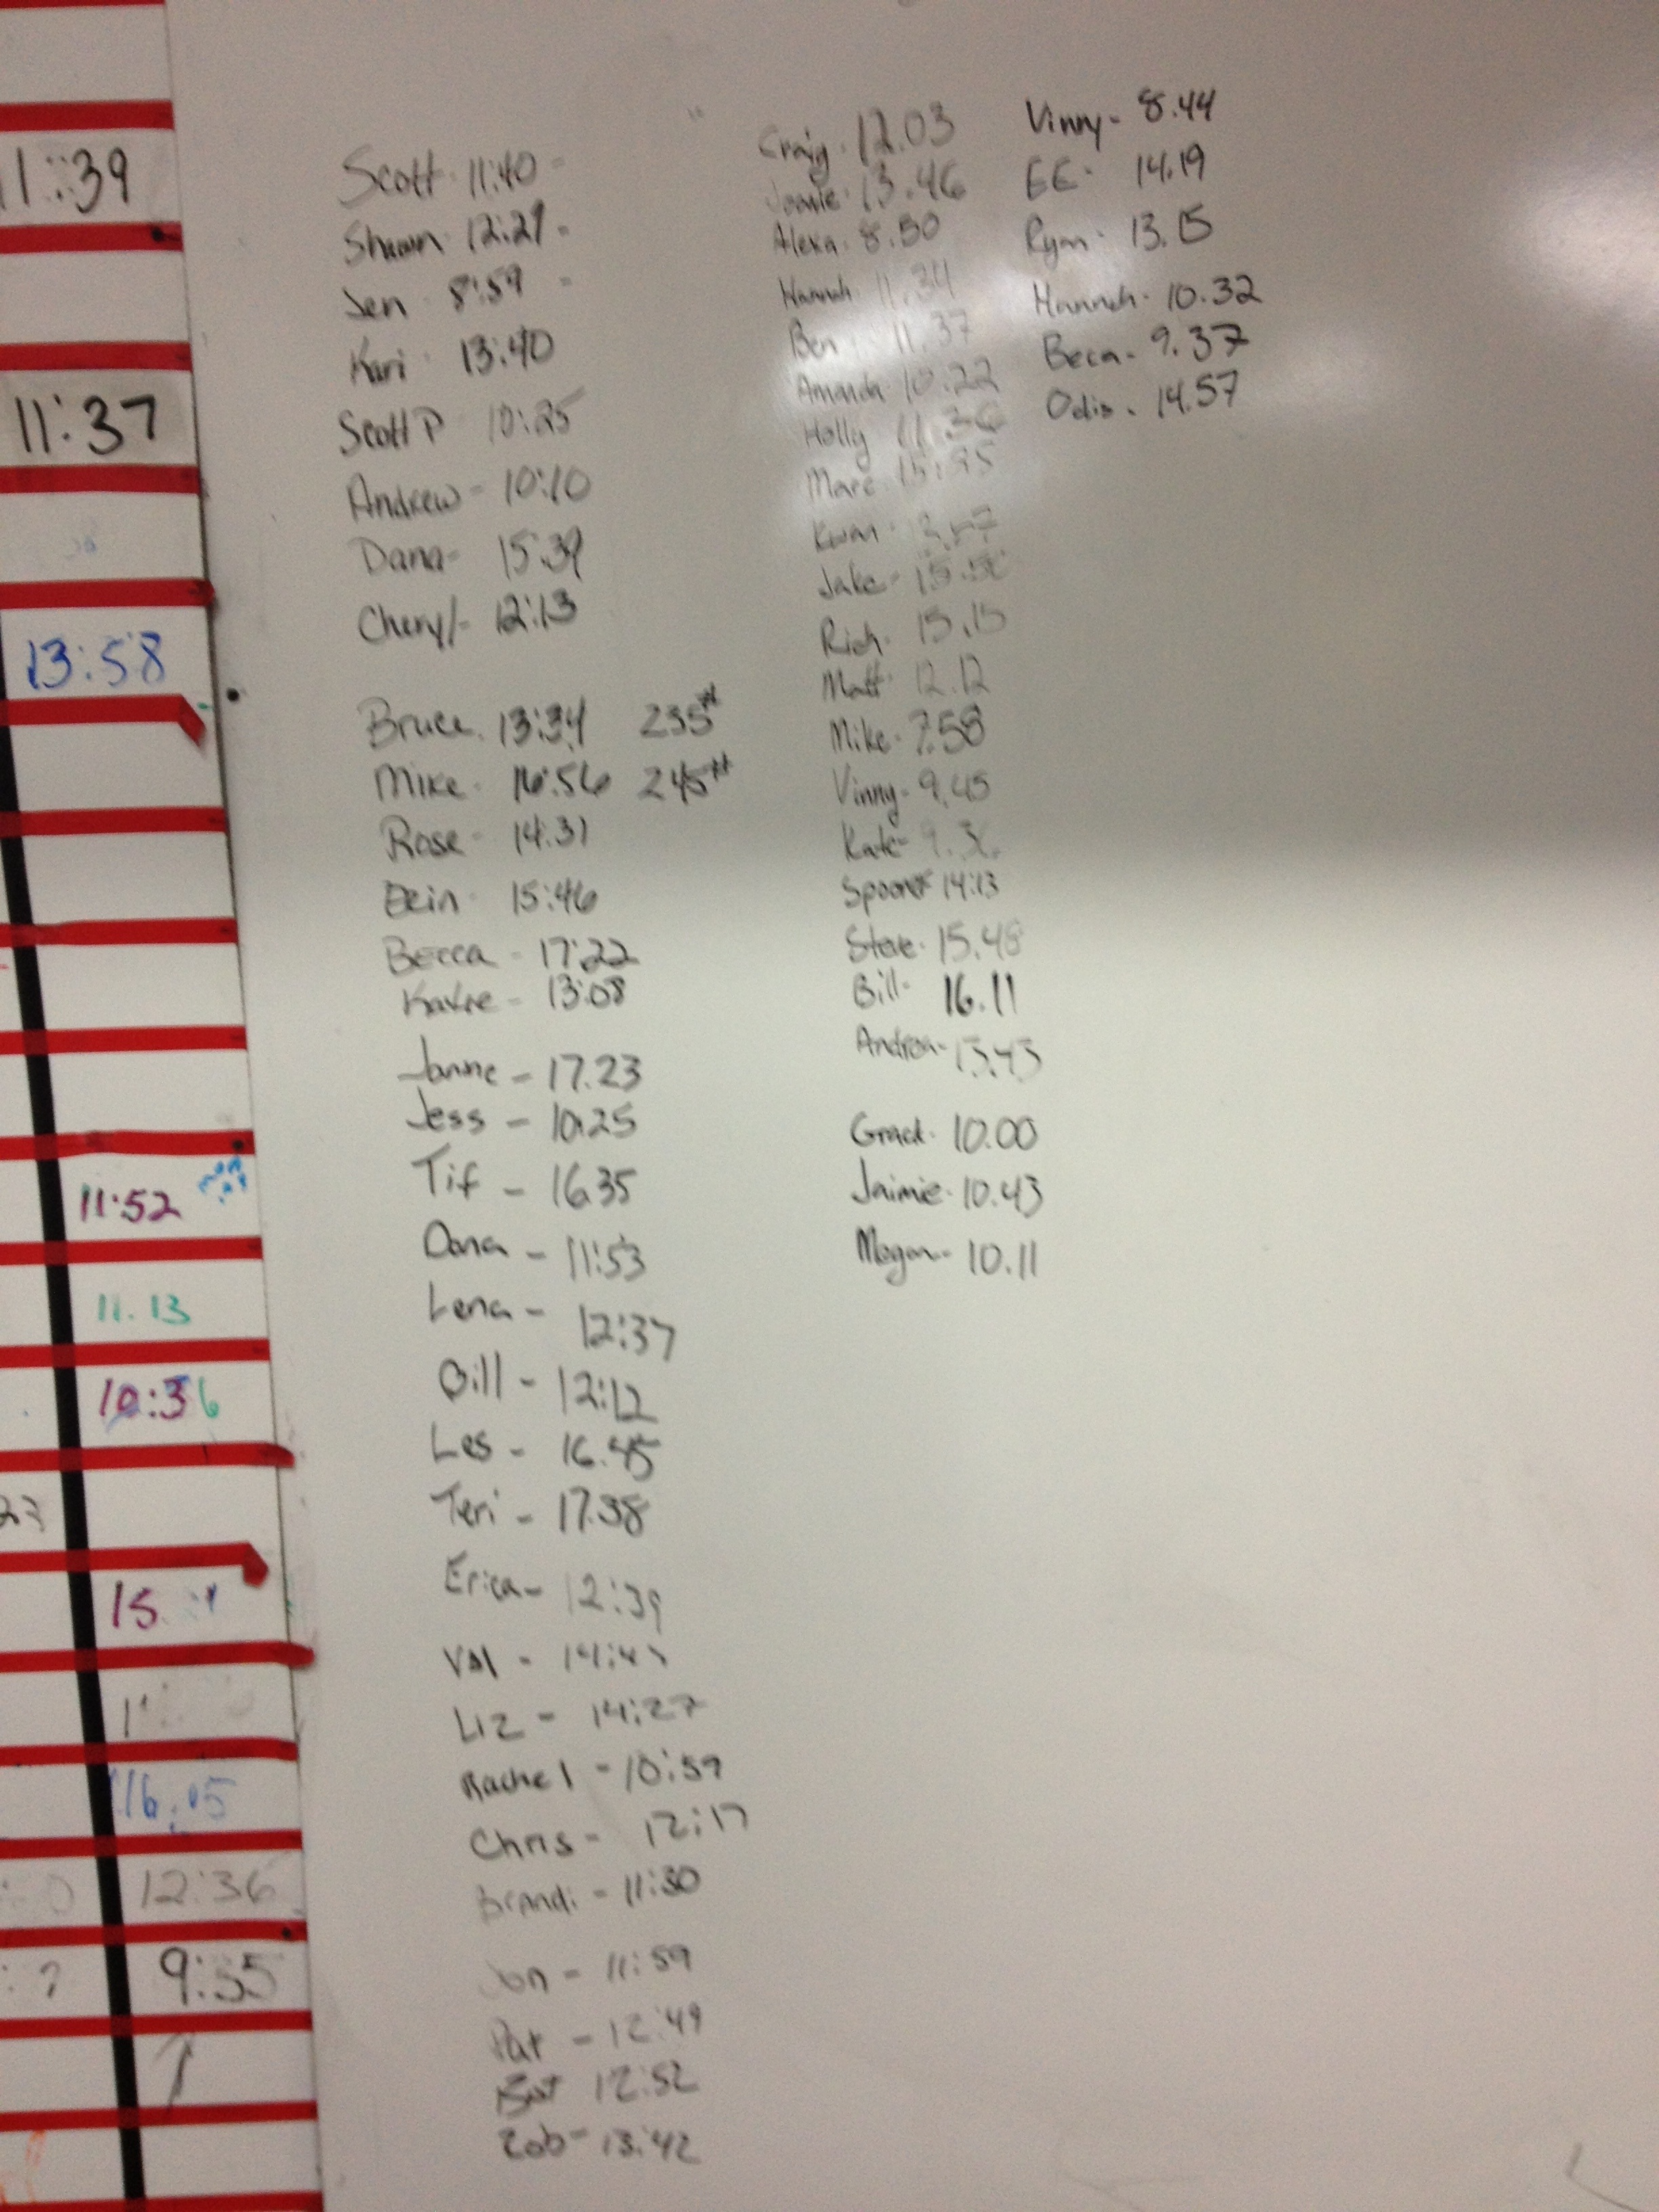 11:39
11:37
13:58
11:52
11.13
10:36
15
12:36
9:35
Scott 11:40
Shawn 12:29
Jen 8:59
Kari 13:40
Scott P 10:25
Andrew - 10:10
Dana - 15:39
Cheryl - 12:13
Bruce. 13:34 235#
Mike. 16:56 245#
Rose - 14:31
Erin - 15:46
Becca - 17:22
Katie - 13:08
Janine - 17.23
Jess - 10.25
Tif - 16.35
Dana - 11:53
Lena - 12:37
Bill - 12:12
Les - 16.45
Teri - 17.38
Erica - 12:39
Val -
Liz - 14:27
Rachel - 10:59
Chris - 12:17
Brandi - 11:30
Jon - 11:59
Pat - 12:49
12:52
Rob - 13:42
Craig - 12.03
13.46
Alexa - 8.50
Hannah 11.34
Ben 11.37
Amanda 10.22
Holly 11.36
Marc
Kwan
Jake -
Rich - 15.15
Matt 12.12
Mike - 7.58
Vinny - 9.45
Kate -
Spooner 14:13
Steve - 15.48
Bill - 16.11
Andrea -
10.00
Jaimie - 10.43
Megan - 10.11
Vinny - 8.44
EE - 14.19
Ryan - 13.15
Hannah - 10.32
Beca - 9.37
Odis - 14.57